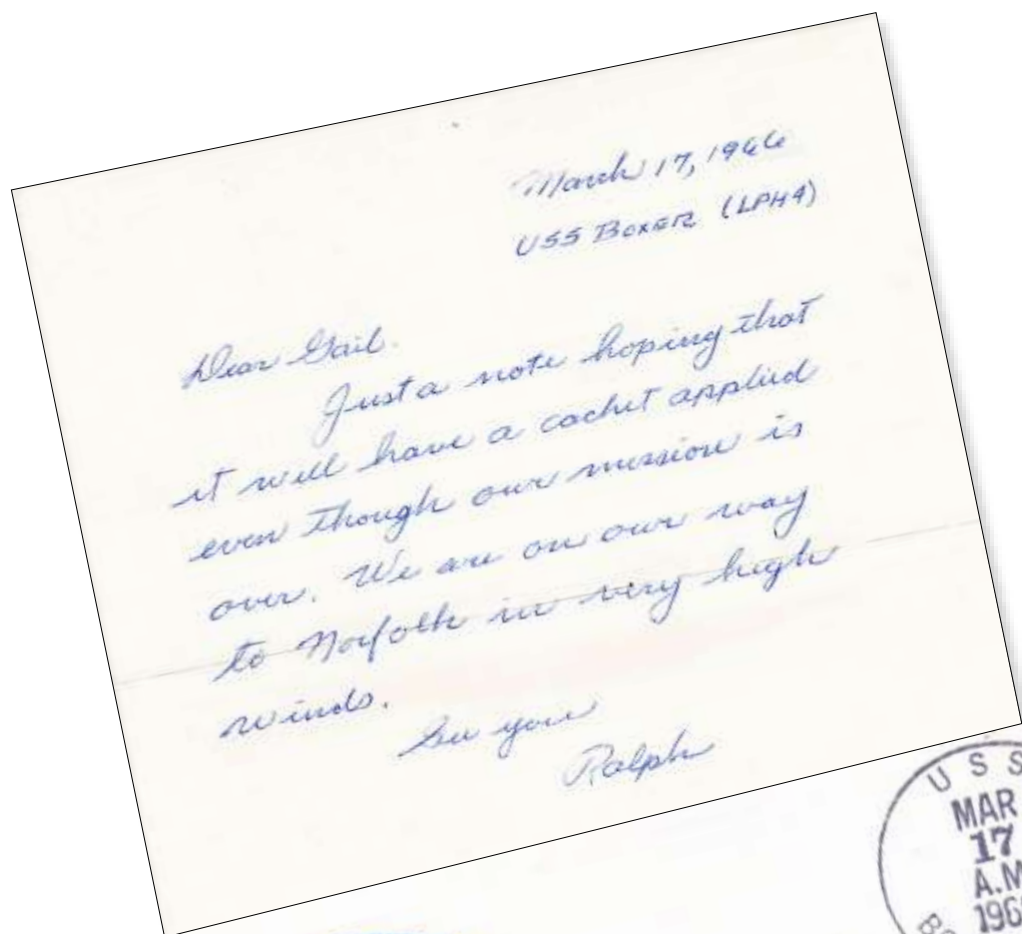 March 17, 1966
USS BOXER (LPH4)
Dear Gail.
Just a note hoping that
it will have a cachet applied
even though our mission is
over. We are on our way
to Norfolk in very high
winds.
See you
Ralph
USS
MAR
17
A.M
196